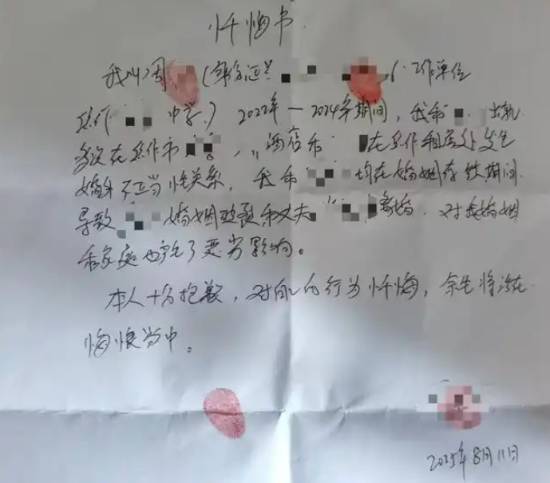 忏悔书
我叫周 (身份证号 (工作单位
焦作 中学) 2022年—2024年期间,我和 出轨
多次在焦作市 酒店和 在焦作租房处发生
婚外不正当性关系,我和 均在婚姻存续期间
导致 婚姻破裂和丈夫 离婚,对 婚姻
和家庭也 了 影响。
本人十分抱歉,对我的行为忏悔,余生将活在
悔恨当中。
2025年8月11日